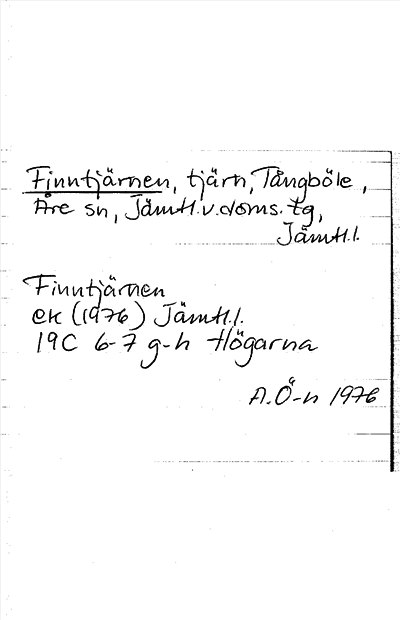 Finntjärnen, tjärn, Tångböle,
Åre sn, Jämtl.v.doms.tg,
Jämtl.l.
Finntjärnen
ek (1976) Jämtl.l.
19C 6-7 g-h Högarna
A.Ö-n 1976